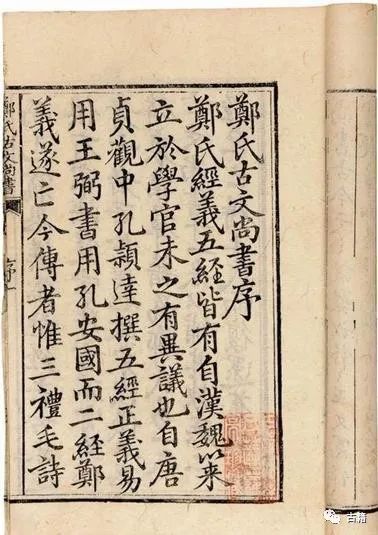 鄭氏古文尚書序
鄭氏經義五經皆有自漢魏以來
立於學官未之有異議也自唐
貞觀中孔穎達撰五經正義易
用王弼書用孔安國而二經鄭
義遂亡今傳者惟三禮毛詩
鄭氏古文尚書
序
古籍